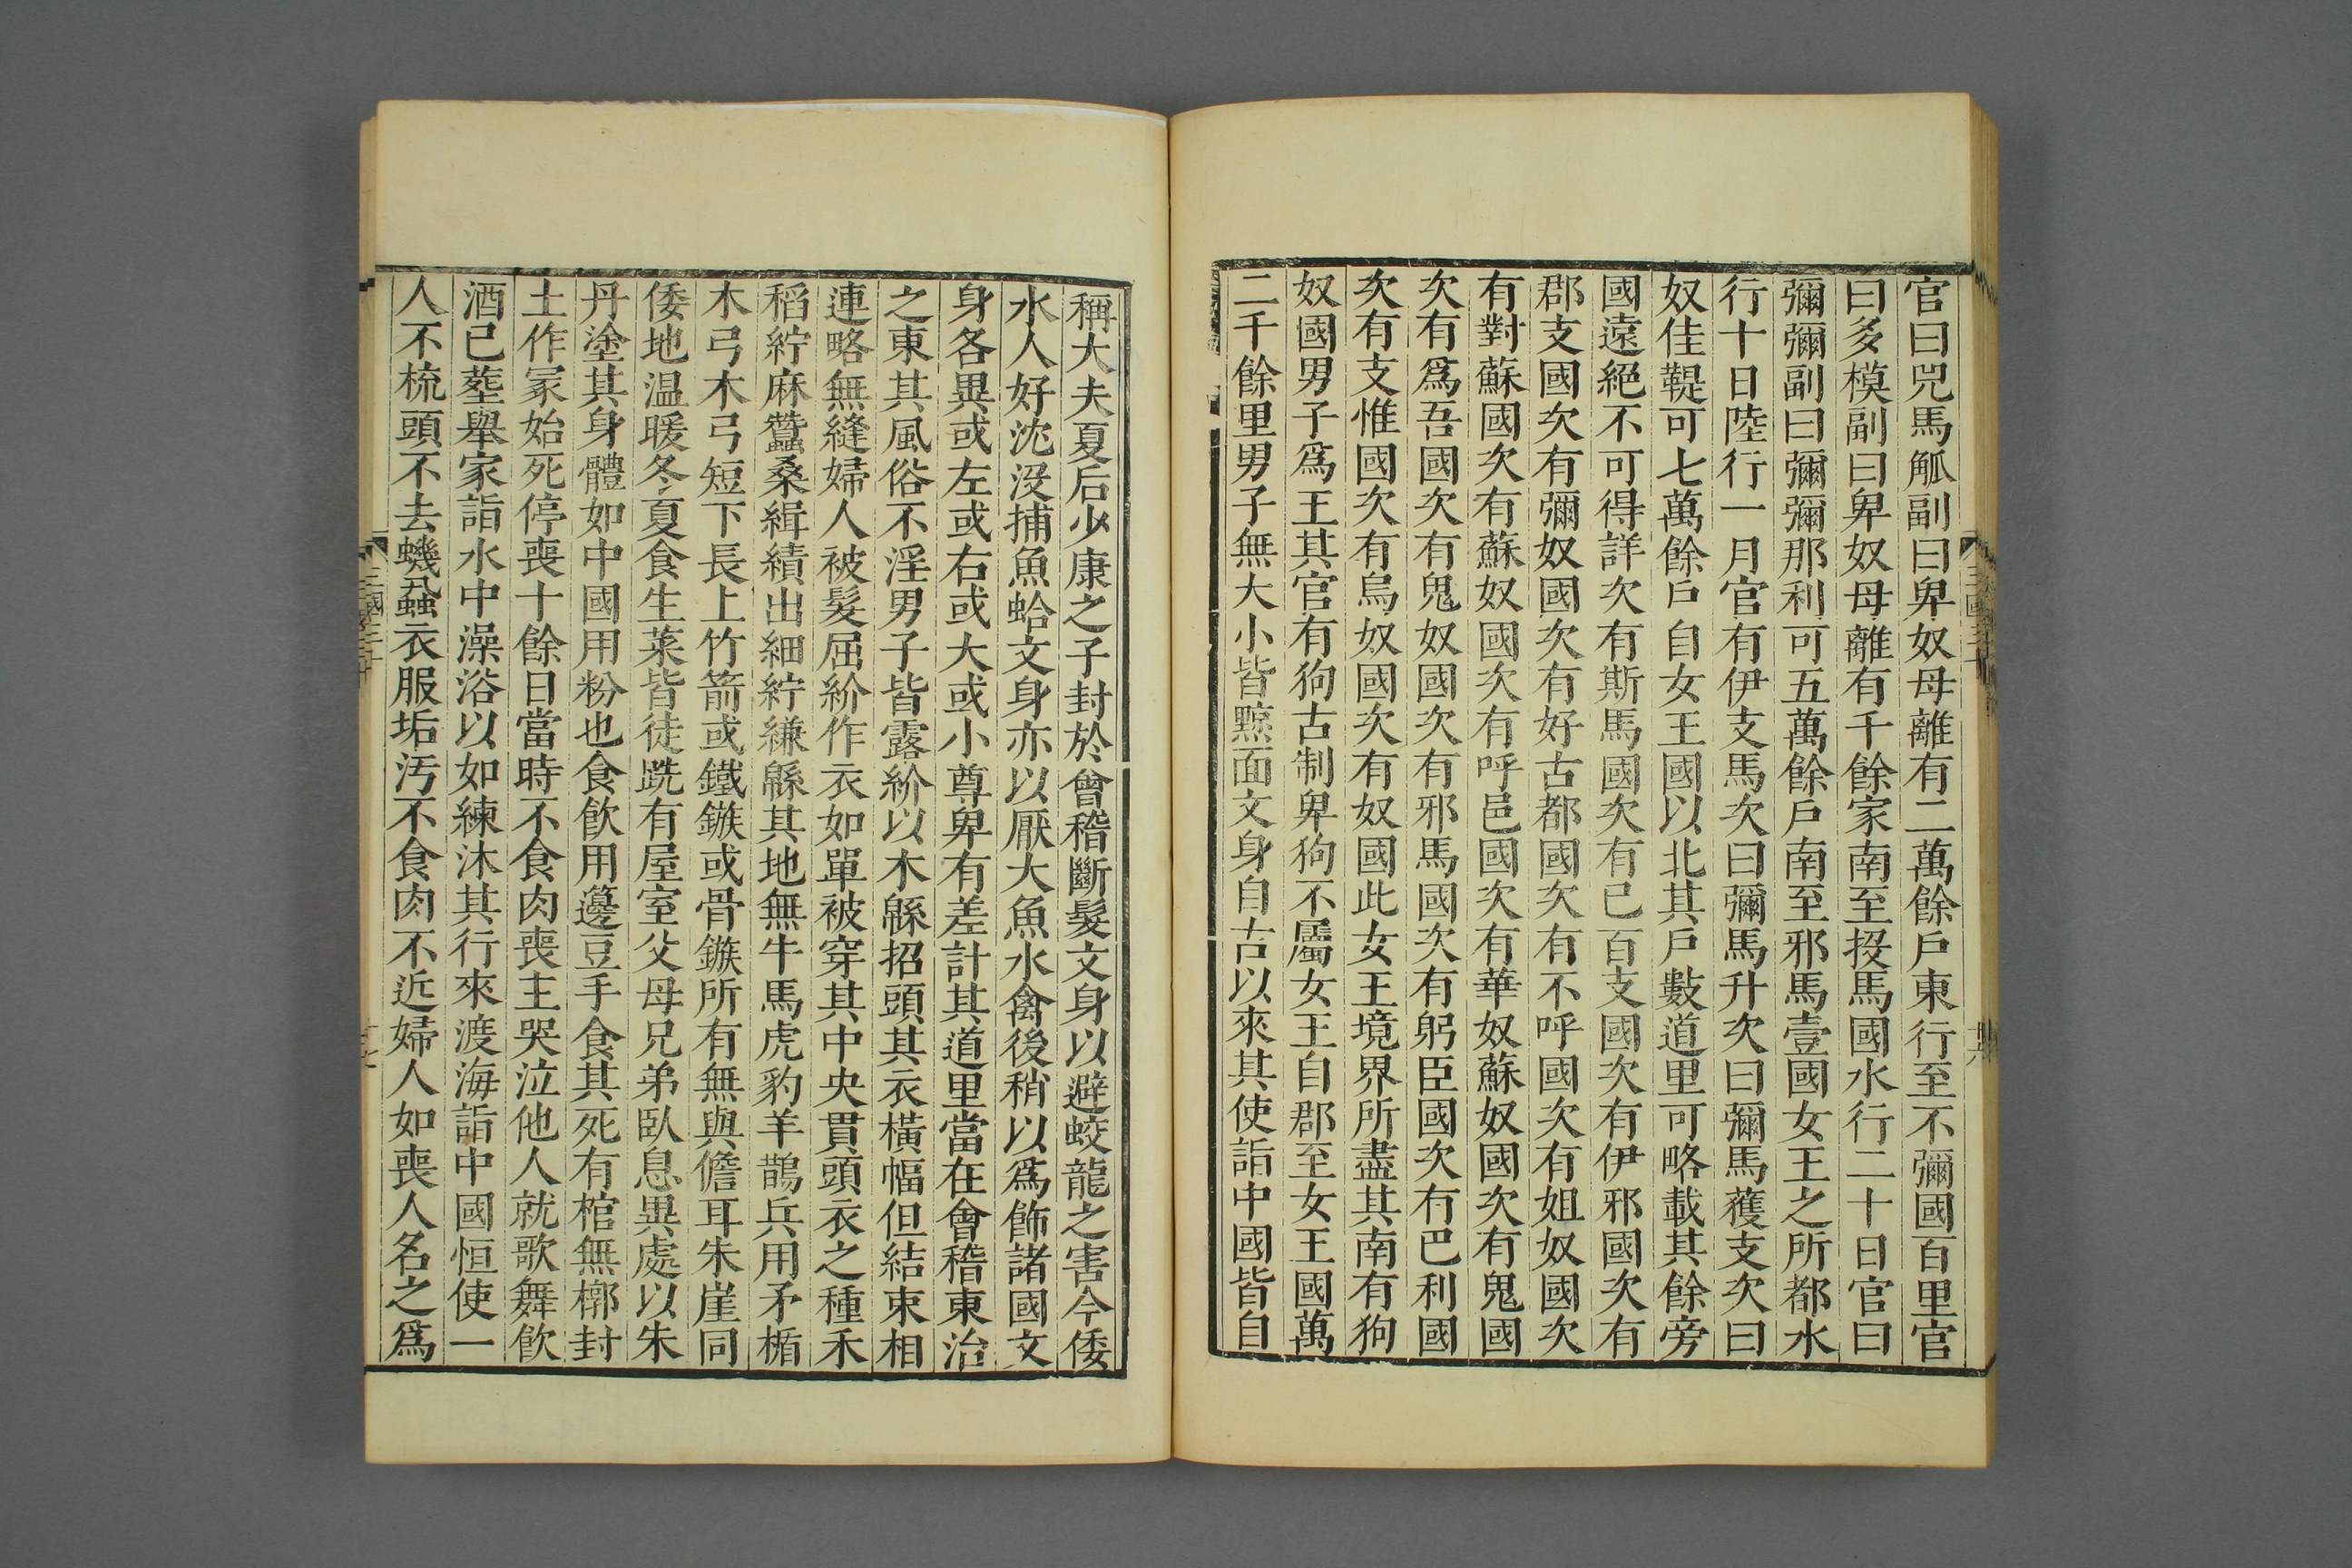 官曰兕馬觚副曰卑奴母離有二萬餘戶東行至不彌國百里官
曰多模副曰卑奴母離有千餘家南至投馬國水行二十日官曰
彌彌副曰彌彌那利可五萬餘戶南至邪馬壹國女王之所都水
行十日陸行一月官有伊支馬次曰彌馬升次曰彌馬獲支次曰
奴佳鞮可七萬餘戶自女王國以北其戶數道里可略載其餘旁
國遠絕不可得詳次有斯馬國次有已百支國次有伊邪國次有
郡支國次有彌奴國次有好古都國次有不呼國次有姐奴國次
有對蘇國次有蘇奴國次有呼邑國次有華奴蘇奴國次有鬼國
次有爲吾國次有鬼奴國次有邪馬國次有躬臣國次有巴利國
次有支惟國次有烏奴國次有奴國此女王境界所盡其南有狗
奴國男子爲王其官有狗古制卑狗不屬女王自郡至女王國萬
二千餘里男子無大小皆黥面文身自古以來其使詣中國皆自
稱大夫夏后少康之子封於會稽斷髮文身以避蛟龍之害今倭
水人好沈没捕魚蛤文身亦以厭大魚水禽後稍以爲飾諸國文
身各異或左或右或大或小尊卑有差計其道里當在會稽東治
之東其風俗不淫男子皆露紒以木緜招頭其衣橫幅但結束相
連略無縫婦人被髮屈紒作衣如單被穿其中央貫頭衣之種禾
稻紵麻蠶桑緝績出細紵縑緜其地無牛馬虎豹羊鵲兵用矛楯
木弓木弓短下長上竹箭或鐵鏃或骨鏃所有無與儋耳朱崖同
倭地温暖冬夏食生菜皆徒跣有屋室父母兄弟臥息異處以朱
丹塗其身體如中國用粉也食飲用籩豆手食其死有棺無槨封
土作冢始死停喪十餘日當時不食肉喪主哭泣他人就歌舞飲
酒已葬舉家詣水中澡浴以如練沐其行來渡海詣中國恒使一
人不梳頭不去蟣蝨衣服垢汚不食肉不近婦人如喪人名之爲